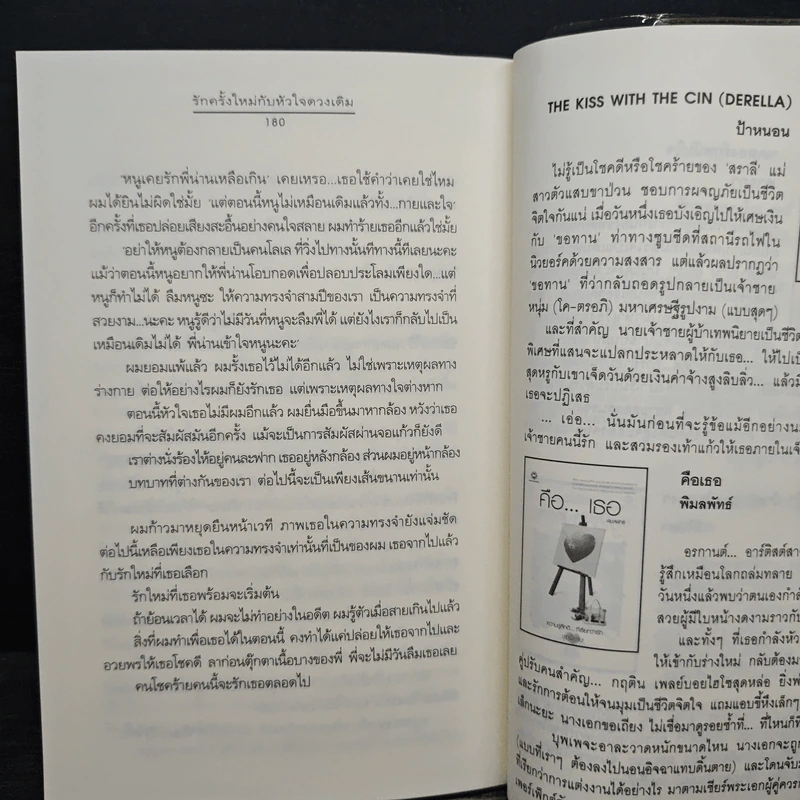 รักครั้งใหม่กับหัวใจดวงเดิม
180
'หนูเคยรักพี่น่านเหลือเกิน' เคยเหรอ...เธอใช้คำว่าเคยใช่ไหม
ผมได้ยินไม่ผิดใช่มั้ย 'แต่ตอนนี้หนูไม่เหมือนเดิมแล้วทั้ง...กายและใจ'
อีกครั้งที่เธอปล่อยเสียงสะอื้นอย่างคนใจสลาย ผมทำร้ายเธออีกแล้วใช่มั้ย
'อย่าให้หนูต้องกลายเป็นคนโลเล ที่วิ่งไปทางนั้นทีทางนี้ทีเลยนะคะ
แม้ว่าตอนนี้หนูอยากให้พี่น่านโอบกอดเพื่อปลอบประโลมเพียงใด...แต่
หนูก็ทำไม่ได้ ลืมหนูซะ ให้ความทรงจำสามปีของเรา เป็นความทรงจำที่
สวยงาม...นะคะ หนูรู้ดีว่าไม่มีวันที่หนูจะลืมพี่ได้ แต่ยังไงเราก็กลับไปเป็น
เหมือนเดิมไม่ได้ พี่น่านเข้าใจหนูนะคะ'
ผมยอมแพ้แล้ว ผมรั้งเธอไว้ไม่ได้อีกแล้ว ไม่ใช่เพราะเหตุผลทาง
ร่างกาย ต่อให้อย่างไรผมก็ยังรักเธอ แต่เพราะเหตุผลทางใจต่างหาก
ตอนนี้หัวใจเธอไม่มีผมอีกแล้ว ผมยื่นมือขึ้นมาหากล้อง หวังว่าเธอ
คงยอมที่จะสัมผัสมันอีกครั้ง แม้จะเป็นการสัมผัสผ่านจอแก้วก็ยังดี
เราต่างนั่งร้องไห้อยู่คนละฟาก เธออยู่หลังกล้อง ส่วนผมอยู่หน้ากล้อง
บทบาทที่ต่างกันของเรา ต่อไปนี้จะเป็นเพียงเส้นขนานเท่านั้น
ผมก้าวมาหยุดยืนหน้าเวที ภาพเธอในความทรงจำยังแจ่มชัด
ต่อไปนี้เหลือเพียงเธอในความทรงจำเท่านั้นที่เป็นของผม เธอจากไปแล้ว
กับรักใหม่ที่เธอเลือก
รักใหม่ที่เธอพร้อมจะเริ่มต้น
ถ้าย้อนเวลาได้ ผมจะไม่ทำอย่างในอดีต ผมรู้ตัวเมื่อสายเกินไปแล้ว
สิ่งที่ผมทำเพื่อเธอได้ในตอนนี้ คงทำได้แค่ปล่อยให้เธอจากไปและ
อวยพรให้เธอโชคดี ลาก่อนตุ๊กตาเนื้อบางของพี่ พี่จะไม่มีวันลืมเธอเลย
คนโชคร้ายคนนี้จะรักเธอตลอดไป
THE KISS WITH THE CIN (DERELLA)
ป้าหนอน
ไม่รู้เป็นโชคดีหรือโชคร้ายของ 'สราลี' แม่
สาวตัวแสบขาป่วน ชอบการผจญภัยเป็นชีวิต
จิตใจกันแน่ เมื่อวันหนึ่งเธอบังเอิญไปให้เศษเงิน
กับ 'ขอทาน' ท่าทางซูบซีดที่สถานีรถไฟใน
นิวยอร์คด้วยความสงสาร แต่แล้วผลปรากฏว่า
'ขอทาน' ที่ว่ากลับถอดรูปกลายเป็นเจ้าชาย
หนุ่ม (โค-ตรอภิ) มหาเศรษฐีรูปงาม (แบบสุดๆ)
และที่สำคัญ นายเจ้าชายผู้บ้าเทพนิยายเป็นชีวิต
พิเศษที่แสนจะแปลกประหลาดให้กับเธอ... ให้ไปเป็
สุดหรูกับเขาเจ็ดวันด้วยเงินค่าจ้างสูงลิบลิ่ว... แล้วมี
เธอจะปฏิเสธ
... เอ่อ... นั่นมันก่อนที่จะรู้ข้อแม้อีกอย่างนะ
เจ้าชายคนนี้รัก และสวมรองเท้าแก้วให้เธอภายในเจ็
คือเธอ
พิมลพัทธ์
คือ... เธอ
อรกานต์... อาร์ติสต์สา
รู้สึกเหมือนโลกถล่มทลาย
วันหนึ่งแล้วพบว่าตนเองกำลั
สวยผู้มีใบหน้างดงามราวกับ
และทั้งๆ ที่เธอกำลังหัว
ให้เข้ากับร่างใหม่ กลับต้องม
คู่ปรับคนสำคัญ... กฤติน เพลย์บอยไฮโซสุดหล่อ ยิ่งพ
และรักการต้อนให้จนมุมเป็นชีวิตจิตใจ แถมแอบขี้หึงเล็กๆ
เล็กนะยะ นางเอกขอเถียง ไม่เชื่อมาดูรอยช้ำที่... ที่ไหนก็ที่
บุพเพจะอาละวาดหนักขนาดไหน นางเอกจะถูก
(แบบที่เราๆ ต้องลงไปนอนอิจฉาแทบดิ้นตาย) และโดนจับม
ที่เรียกว่าการแต่งงานได้อย่างไร มาตามเชียร์พระเอกผู้คู่ควร